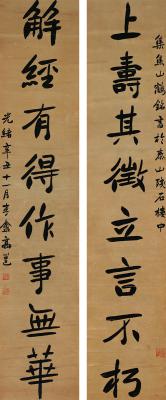 集焦山鶴銘書於泰山殘石樓中
上壽其徵立言不朽
解經有得作事無華
光緒辛丑十一月李盦高邕